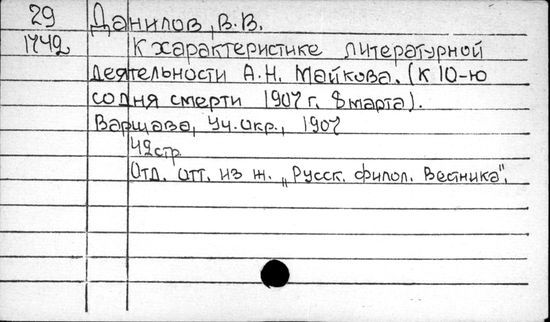 29 Данилов, В.В.
1742 К характеристике литературной
деятельности А.Н. Майкова. (К 10-ю
со дня смерти 1907 г. 8 марта).
Варшава, Уч. Окр., 1907
42 стр.
Отд. отт. из ж. „Русск. филол. Вестника".